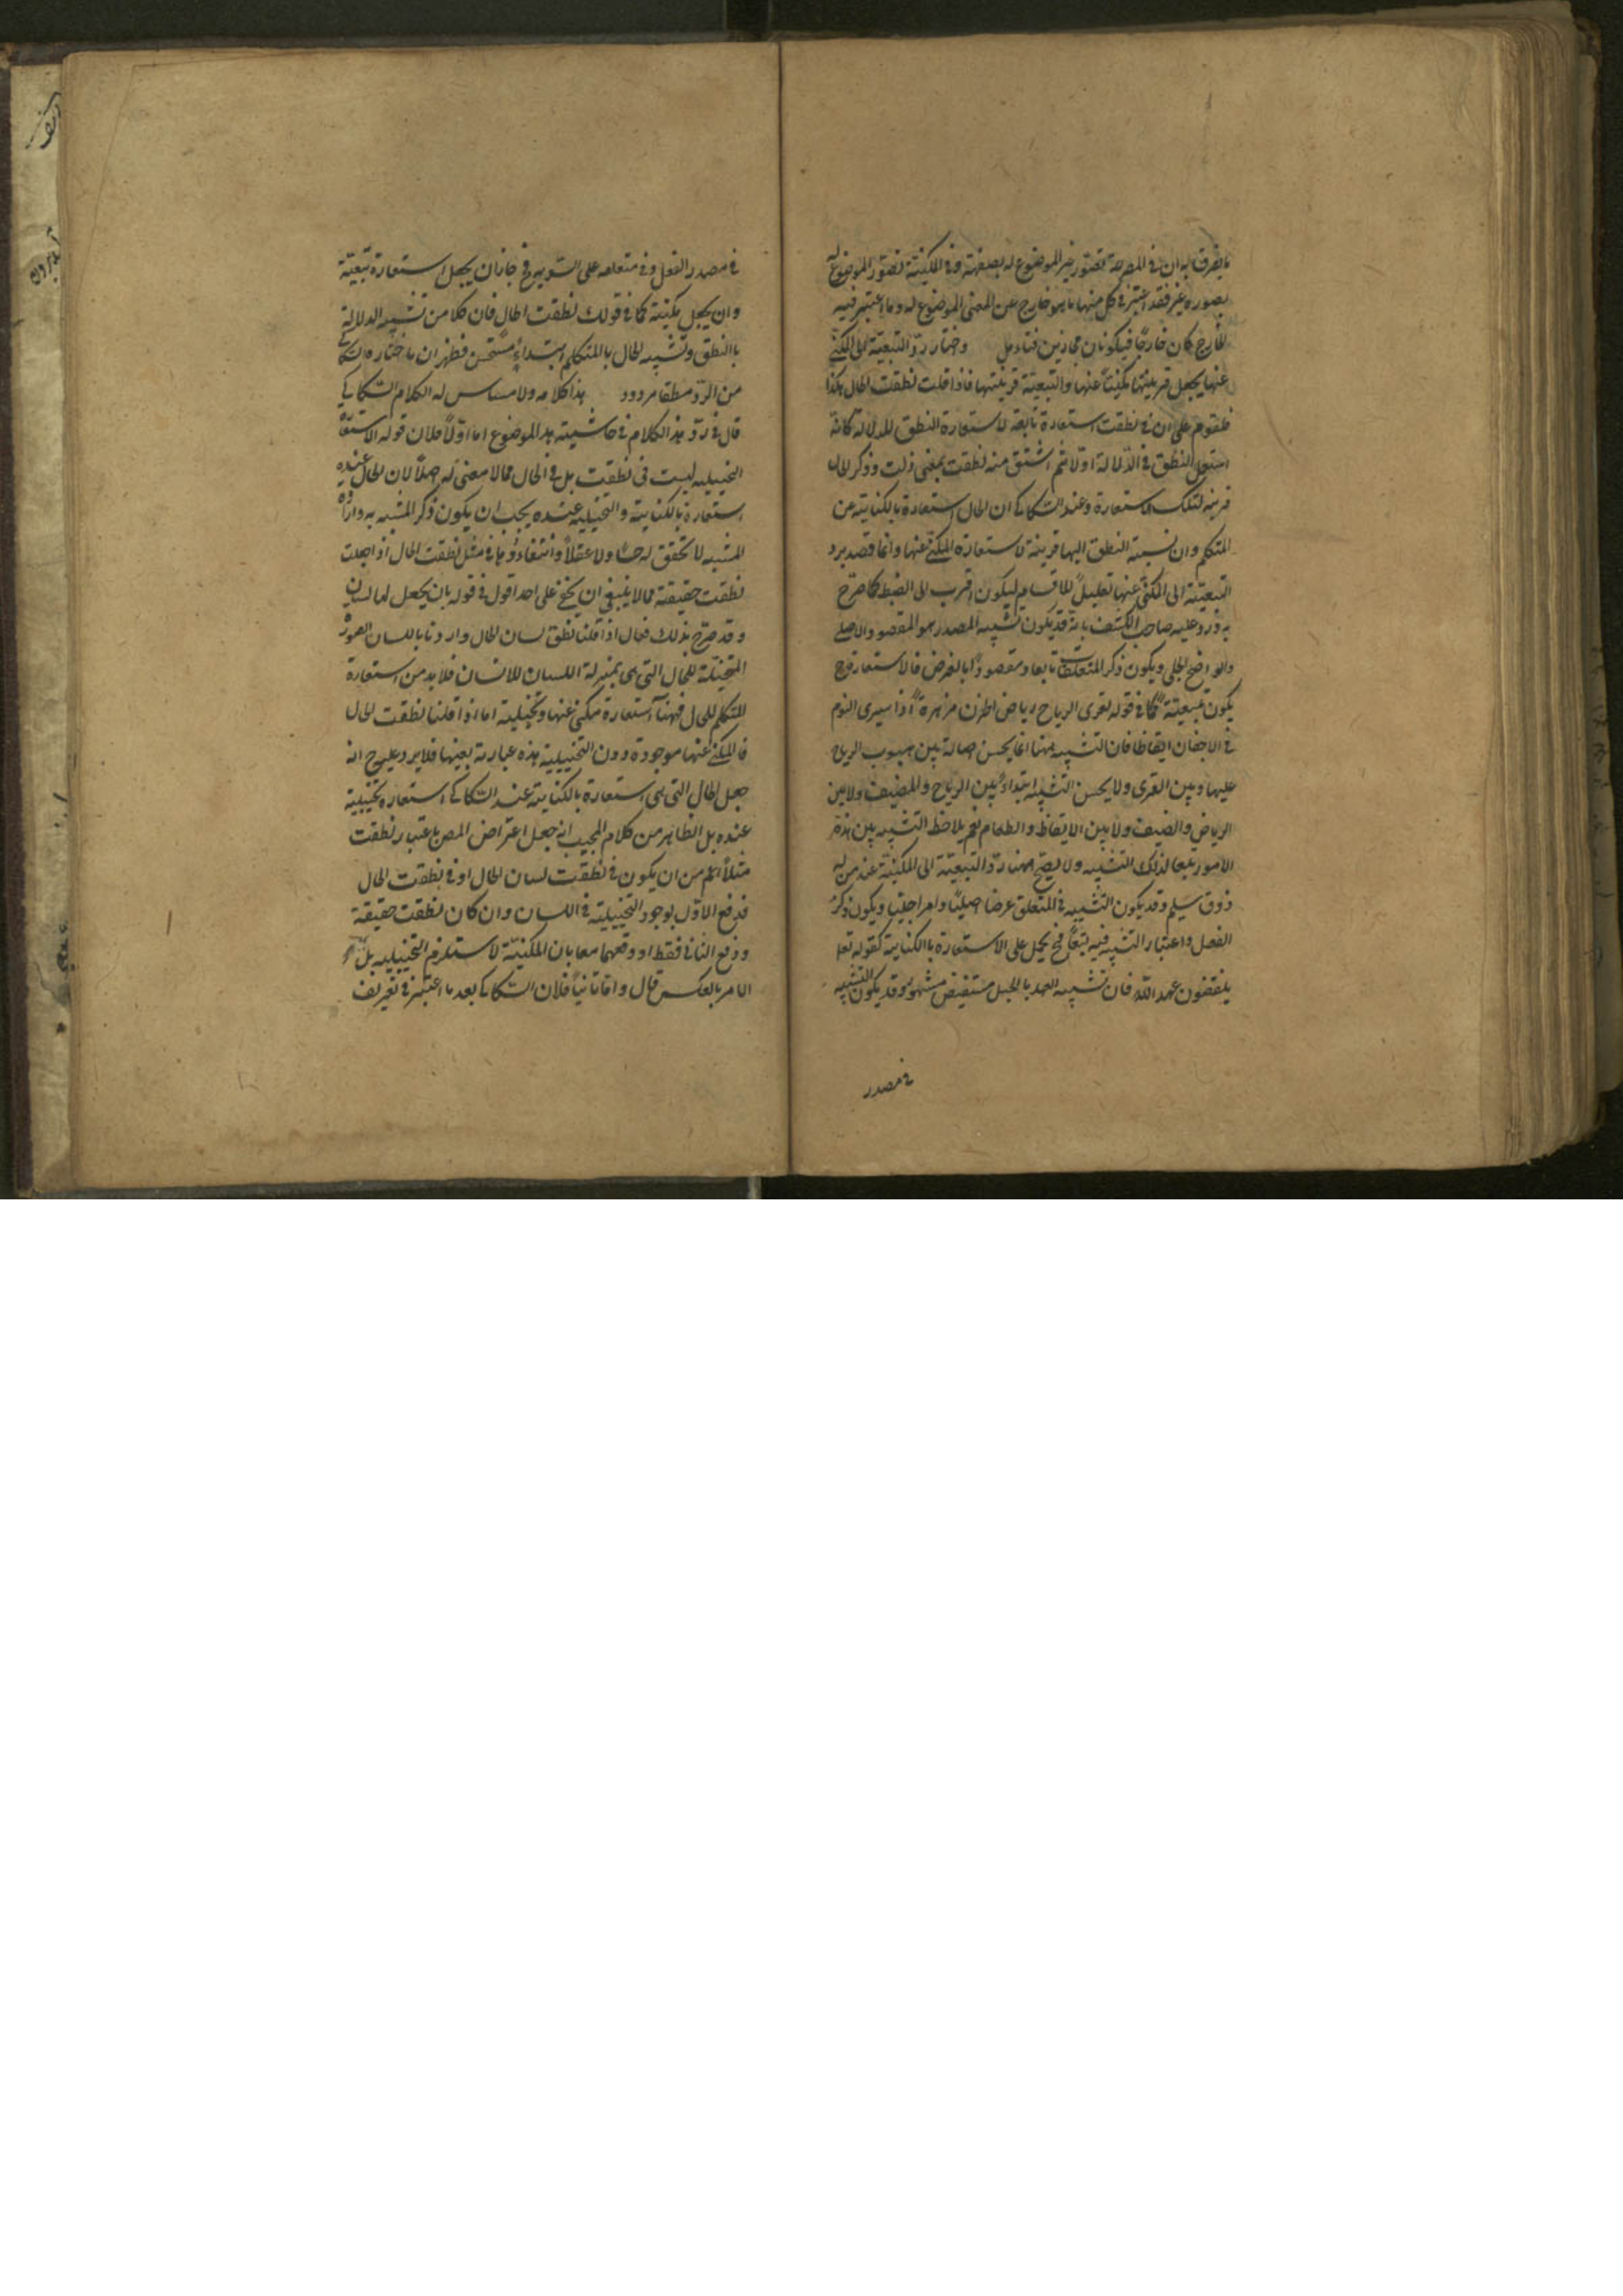 ما يفرق به ان في المصرحة تصور غير الموضوع له بصفته وفي المكنية تصور الموضوع له
بصورة غير فقد اعتبر في كل منهما ما هو خارج عن المعنى الموضوع له وما اعتبر فيه
الخارج كان خارجًا فيكونان مجازين فتاءمل واختار ردّ التبعيّة الى المكنّى
عنها يجعل قرينتها مكنيّا عنها والتبعيّة قرينتها فاذا قلت نطقت الحال بكذا
فالقوم على ان في نطقت استعارة تابعة لاستعارة النطق للدلالة كانه
استعمل النطق في الدّلالة اولا ثم اشتق منه نطقت بمعنى دلت وذكر الحال
قرينة لتلك الاستعارة وعند السكاكى ان الحال استعارة بالكناية عن
المتكلم وان نسبة النطق اليها قرينة لاستعارة المكنّى عنها وانما قصد برد
التبعيّة الى المكنّى عنها تقليلًا للاقسام ليكون اقرب الى الضبط كما صرّح
به وردّ عليه صاحب الكشف بانه قد يكون تشبيه المصدر هو المقصود الاصلى
والواضح الجلى ويكون ذكر المتعلقات تابعا ومقصودًا بالعرض فالاستعارة ح
يكون تبعيّة كما في قوله تقرى الرياح رياض الحزن مزهرة اذا سرى النوم
في الاجفان ايقاظا فان التشبيه ههنا انما يحسن اصالة بين هبوب الرياح
عليها وبين القرى ولا يحسن التشبيه ابتداءً بين الرياح والمضيف ولا بين
الرياض والضيف ولا بين الايقاظ والطعام ثم يلاحظ التشبيه بين هذه
الامور تبعا لذلك التشبيه ولا يصح ههنا ردّ التبعيّة الى المكنيّة عند من له
ذوق سليم وقد يكون التشبيه في المتعلق عرضا اصليّا وامرا جليّا ويكون ذكر
الفعل واعتبار التشبيه فيه تبعًا فح يحمل على الاستعارة بالكناية كقوله تعا
ينقضون عهد الله فان تشبيه العهد بالحبل مستفيض مشهور وقد يكون التشبيه
في مصدر
في مصدر الفعل وفي متعلقه على السّوية فح جاز ان يجعل استعارة تبعيّة
وان يجعل مكنية كما في قولك نطقت الحال فان كلا من تشبيه الدلالة
باالنطق وتشبيه الحال باالمتكلم ابتداءً مستحسن فظهر ان ما اختاره السكاكى
من الرّد مطلقا مردود هذا كلامه ولا مساس له الكلام السكاكى
قال في ردّ هذا الكلام في حاشيته بهذا الموضوع اما اوّلا فلان قوله الاستعارة
التخييلية ليست في نطقت بل في الحال مما لا معنى له اصلًا لان الحال عنده
استعارة بالكناية والتخييلية عنده يجب ان يكون ذكر المشبه به وارادة
المشبه لا تحقق له حسّا ولا عقلًا وانتفاءه هنا في مثل نطقت الحال اذا جعلت
نطقت حقيقة مما لا ينبغي ان يخفى على احد اقول في قوله بان يجعل لها لسان
وقد صرّح بذلك فقال اذا قلنا نطق لسان الحال واردنا باللسان الصورة
المتخيّلة للحال التى هى بمنزلة اللسان للانسان فلا بد من استعارة
المتكلم للحال فههنا استعارة مكنّى عنها وتخييلية اما اذا قلنا نطقت الحال
فالمكنّى عنها موجودة دون التخييلية هذه عبارته بعينها فلا يرد عليه ح انه
جعل الحال التى هى استعارة بالكناية عند السكاكى استعارة تخييلية
عنده بل الظاهر من كلام المجيب انه جعل اعتراض المص باعتبار نطقت
مثلًا اعم من ان يكون في نطقت لسان الحال او في نطقت الحال
فدفع الاوّل بوجود التخييلية في اللسان وان كان نطقت حقيقة
ودفع الثانى فقط او دفعهما معا بان المكنيّة لا تستلزم التخييلية بل
الامر بالعكس قال واما ثانيًا فلان السكاكى بعد ما اعتبر في تعريف